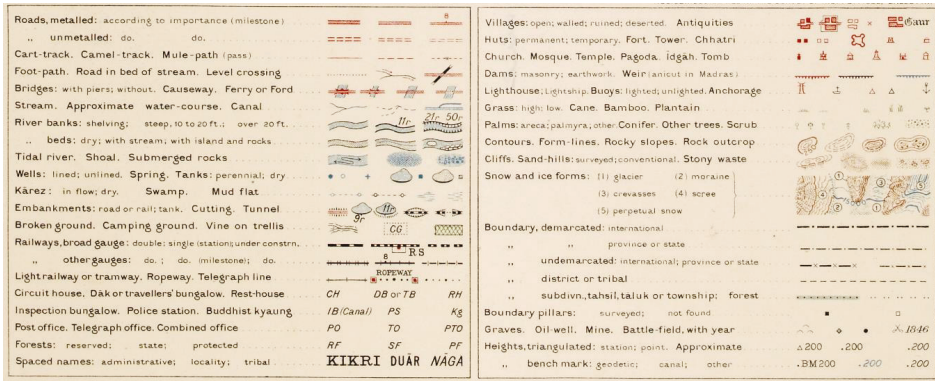 Roads, metalled: according to importance (milestone) 8
„ unmetalled: do. do.
Cart-track. Camel-track. Mule-path (pass)
Foot-path. Road in bed of stream. Level crossing
Bridges: with piers; without. Causeway. Ferry or Ford
Stream. Approximate water-course. Canal
River banks: shelving; steep, 10 to 20 ft.; over 20 ft. 11r 21r 50r
„ beds: dry; with stream; with island and rocks
Tidal river. Shoal. Submerged rocks
Wells: lined; unlined. Spring. Tanks: perennial; dry
Kārez: in flow; dry. Swamp. Mud flat
Embankments: road or rail; tank. Cutting. Tunnel 9r 11r
Broken ground. Camping ground. Vine on trellis CG
Railways, broad gauge: double; single (station); under constrn. RS
„ other gauges: do. ; do. (milestone); do. 8
Light railway or tramway. Ropeway. Telegraph line ROPEWAY
Circuit house. Dāk or travellers' bungalow. Rest-house CH DB or TB RH
Inspection bungalow. Police station. Buddhist kyaung IB (Canal) PS Kg
Post office. Telegraph office. Combined office PO TO PTO
Forests: reserved; state; protected RF SF PF
Spaced names: administrative; locality; tribal KIKRI DUĀR NĀGA
Villages: open; walled; ruined; deserted. Antiquities Gaur
Huts: permanent; temporary. Fort. Tower. Chhatri
Church. Mosque. Temple. Pagoda. Īdgāh. Tomb
Dams: masonry; earthwork. Weir (anicut in Madras)
Lighthouse; Lightship. Buoys: lighted; unlighted. Anchorage
Grass: high; low. Cane. Bamboo. Plantain
Palms: areca; palmyra; other. Conifer. Other trees. Scrub
Contours. Form-lines. Rocky slopes. Rock outcrop
Cliffs. Sand-hills: surveyed; conventional. Stony waste
Snow and ice forms: (1) glacier (2) moraine
(3) crevasses (4) scree
(5) perpetual snow
Boundary, demarcated: international
„ „ province or state
„ undemarcated: international; province or state
„ district or tribal
„ subdivn., tahsil, taluk or township; forest
Boundary pillars: surveyed; not found
Graves. Oil-well. Mine. Battle-field, with year 1846
Heights, triangulated: station; point. Approximate 200 .200 .200
„ bench mark: geodetic; canal; other .BM 200 .200 .200